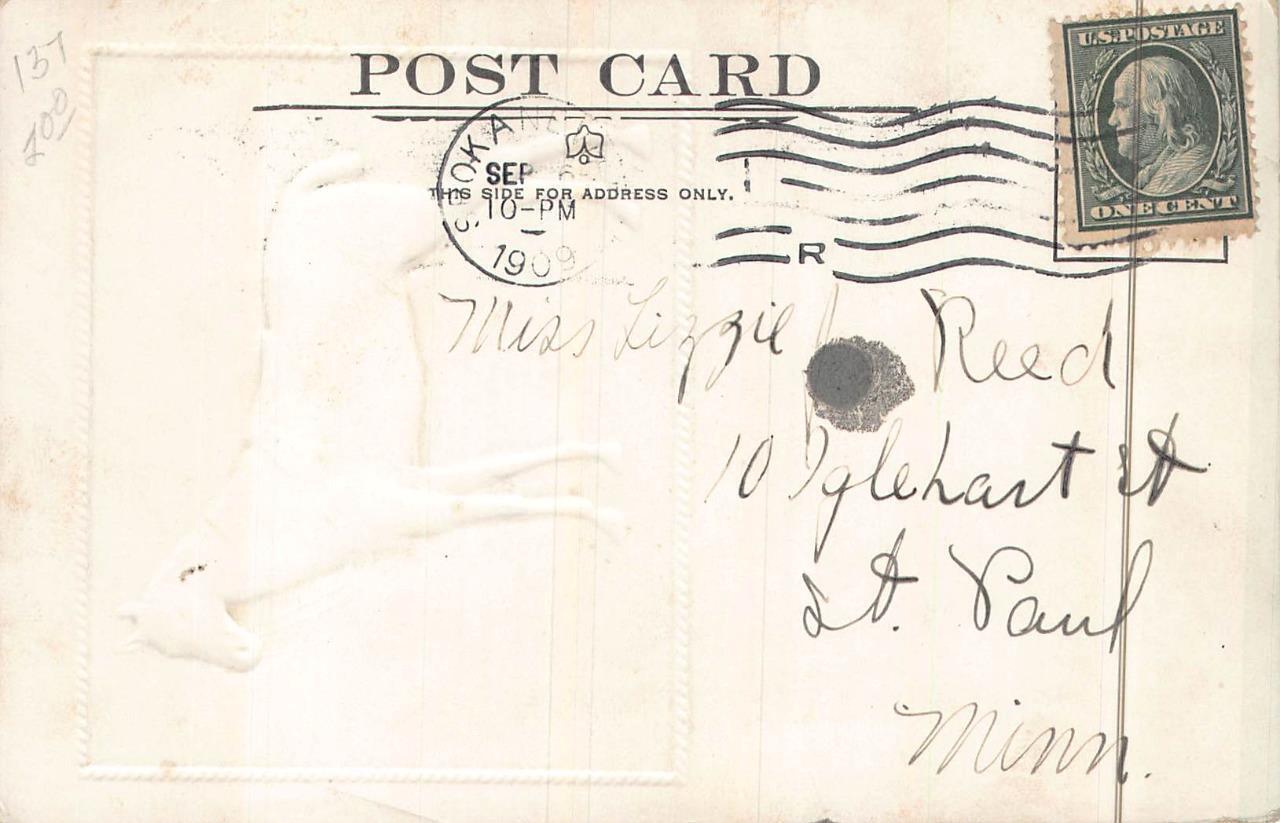 137
200
POST CARD
U.S. POSTAGE
SPOKANE
SEP 6
THIS SIDE FOR ADDRESS ONLY.
10-PM
1909
R
ONE CENT
Miss Lizzie Reed
10 Iglehart st
St. Paul
Minn.